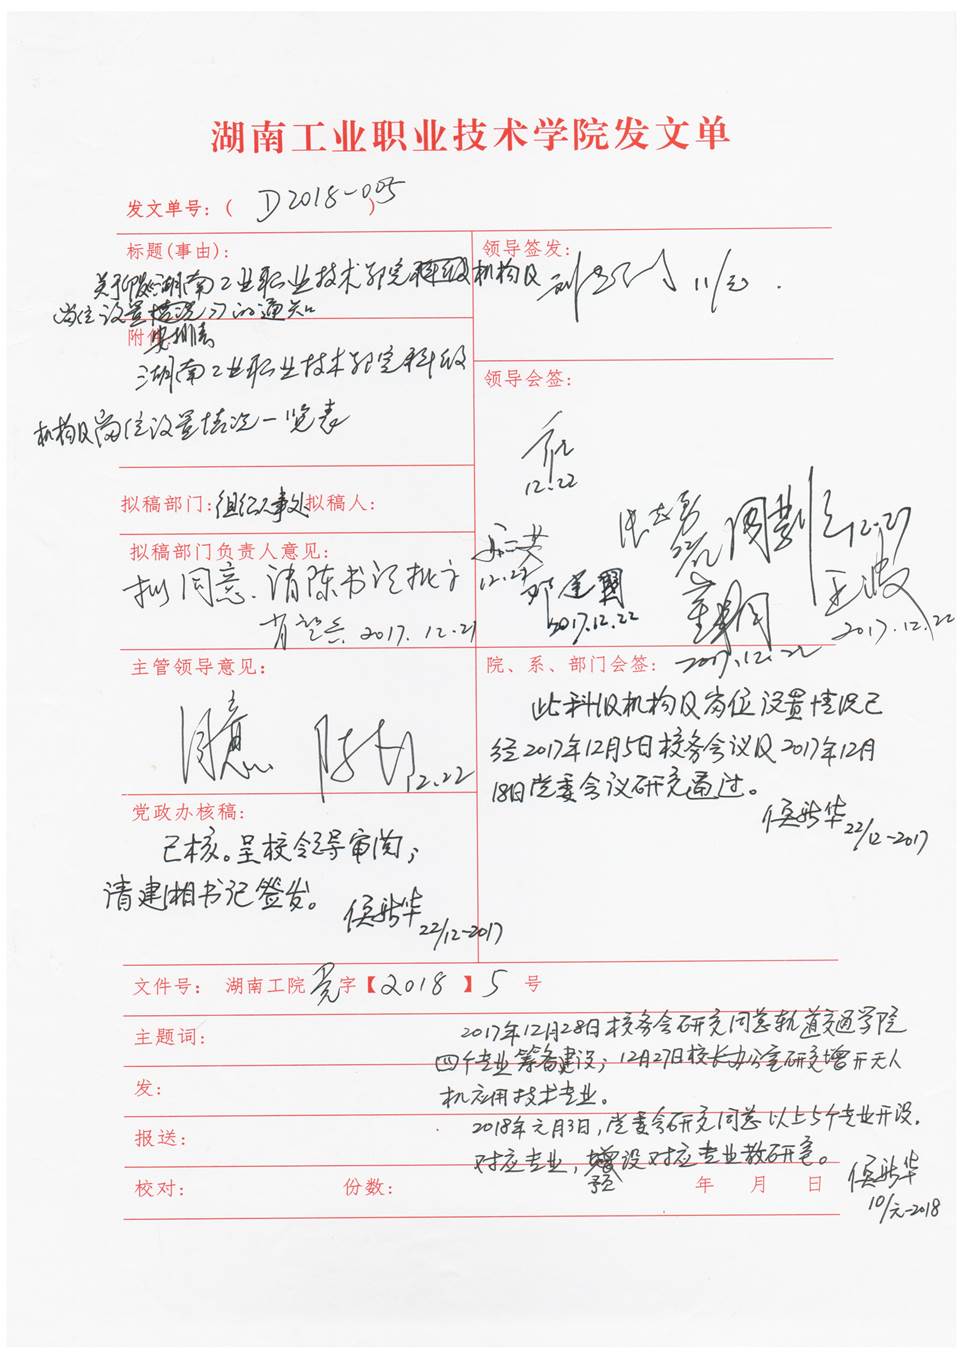 湖南工业职业技术学院发文单
发文单号：( D2018-005 )
标题(事由)：
关于印发《湖南工业职业技术学院科级机构及
岗位设置情况》的通知
附件
湖南工业职业技术学院科级
机构及岗位设置情况一览表
拟稿部门：组织人事处 拟稿人：
拟稿部门负责人意见：
拟同意.请陈书记批示
2017.12.21
主管领导意见：
同意
12.22
党政办核稿：
已核。呈校领导审阅；
请建湘书记签发。
侯新华 22/12-2017
领导签发：
11/元.
领导会签：
12.22
12.21
12.22
邓建国
2017.12.22
王波
2017.12.22
2017.12.22
院、系、部门会签：
此科级机构及岗位设置情况已
经2017年12月5日校务会议及2017年12月
18日党委会议研究通过。
侯新华 22/12-2017
文件号： 湖南工院党字【2018】5 号
主题词：
2017年12月28日校务会研究同意轨道交通学院
四个专业筹备建设；12月27日校长办公室研究增开无人
机应用技术专业。
发：
报送：
2018年元月3日，党委会研究同意以上5个专业开设.
对应专业，增设对应专业教研室。
侯新华
10/元-2018
校对： 份数： 年 月 日